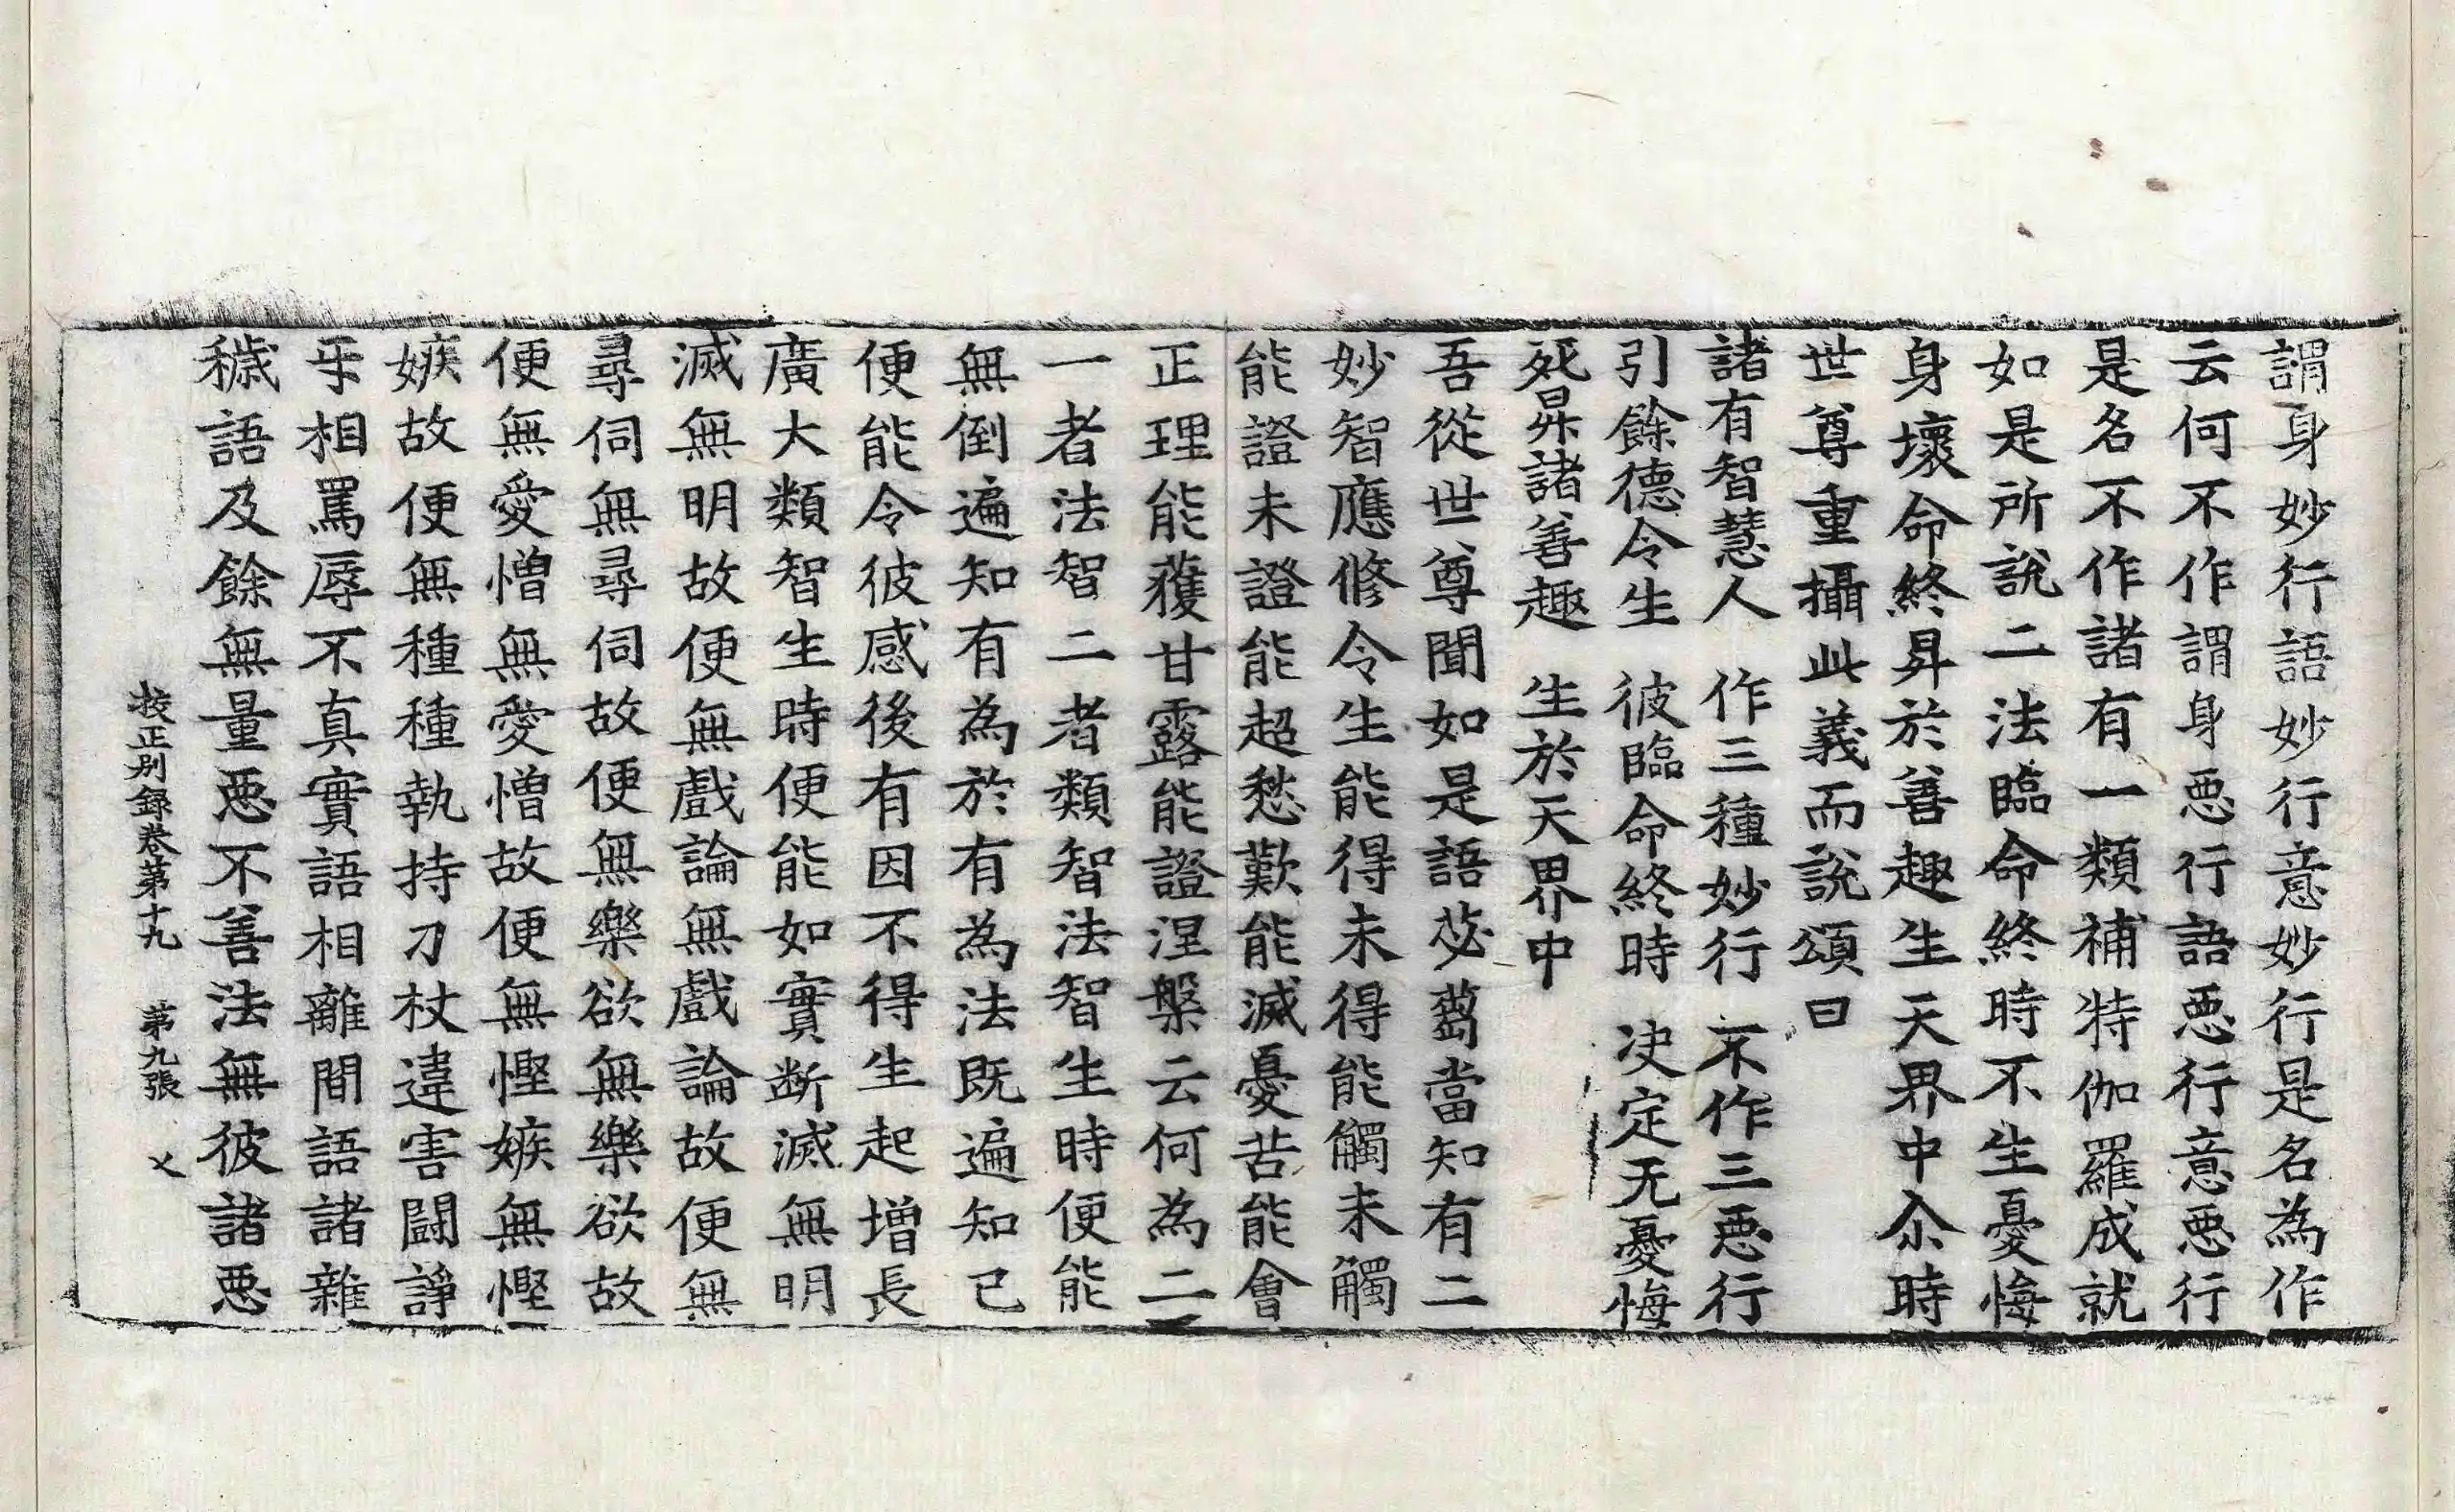 謂身妙行語妙行意妙行是名為作
云何不作謂身惡行語惡行意惡行
是名不作諸有一類補特伽羅成就
如是所說二法臨命終時不生憂悔
身壞命終昇於善趣生天界中尒時
世尊重攝此義而說頌曰
諸有智慧人　作三種妙行　不作三惡行
引餘德令生　彼臨命終時　决定无憂悔
死昇諸善趣　生於天界中
吾從世尊聞如是語苾蒭當知有二
妙智應修令生能得未得能觸未觸
能證未證能超愁歎能滅憂苦能會
正理能獲甘露能證涅槃云何為二
一者法智二者類智法智生時便能
無倒遍知有為於有為法既遍知已
便能令彼感後有因不得生起增長
廣大類智生時便能如實断滅無明
滅無明故便無戲論無戲論故便無
尋伺無尋伺故便無樂欲無樂欲故
便無愛憎無愛憎故便無慳嫉無慳
嫉故便無種種執持刀杖違害鬪諍
𭃡相罵辱不真實語相離間語諸雜
穢語及餘無量惡不善法無彼諸惡
挍正別録卷苐十九　苐九張